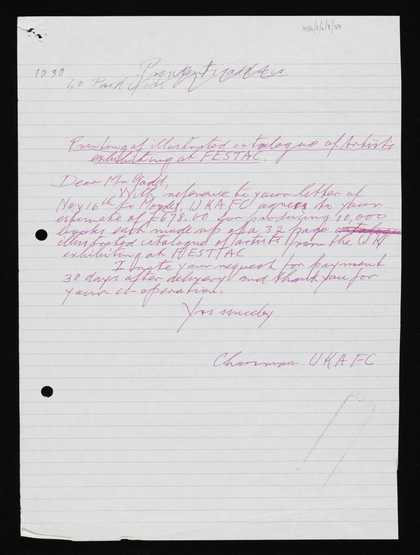 10.30
60 Park
Printing of illustrated catalogue of Artists
exhibiting at FESTAC.
Dear Mr
With reference to your letter of
Nov 16th UKAFC agrees to your
estimate of £678.00 for producing 10,000
books each made up of a 32 page
illustrated catalogue of artists from the UK
exhibiting at FESTAC
I note your request for payment
30 days after delivery and thank you for
your co-operation.
Yrs sincerely
Chairman UKAFC